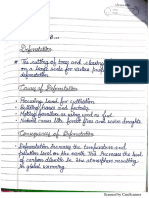 Deforestation
→ The cutting of trees and clearing
on a large scale for various
deforestation.
Causes of Deforestation
• Procuring land for cultivation
• Building houses and factories
• Making furniture or using wood as fuel
• Natural causes like forest fires and severe droughts
Consequences of Deforestation
• Deforestation increases the temperature and
pollution level on the earth. This increases the level
of carbon dioxide in the atmosphere resulting
in global warming.
Scanned by CamScanner